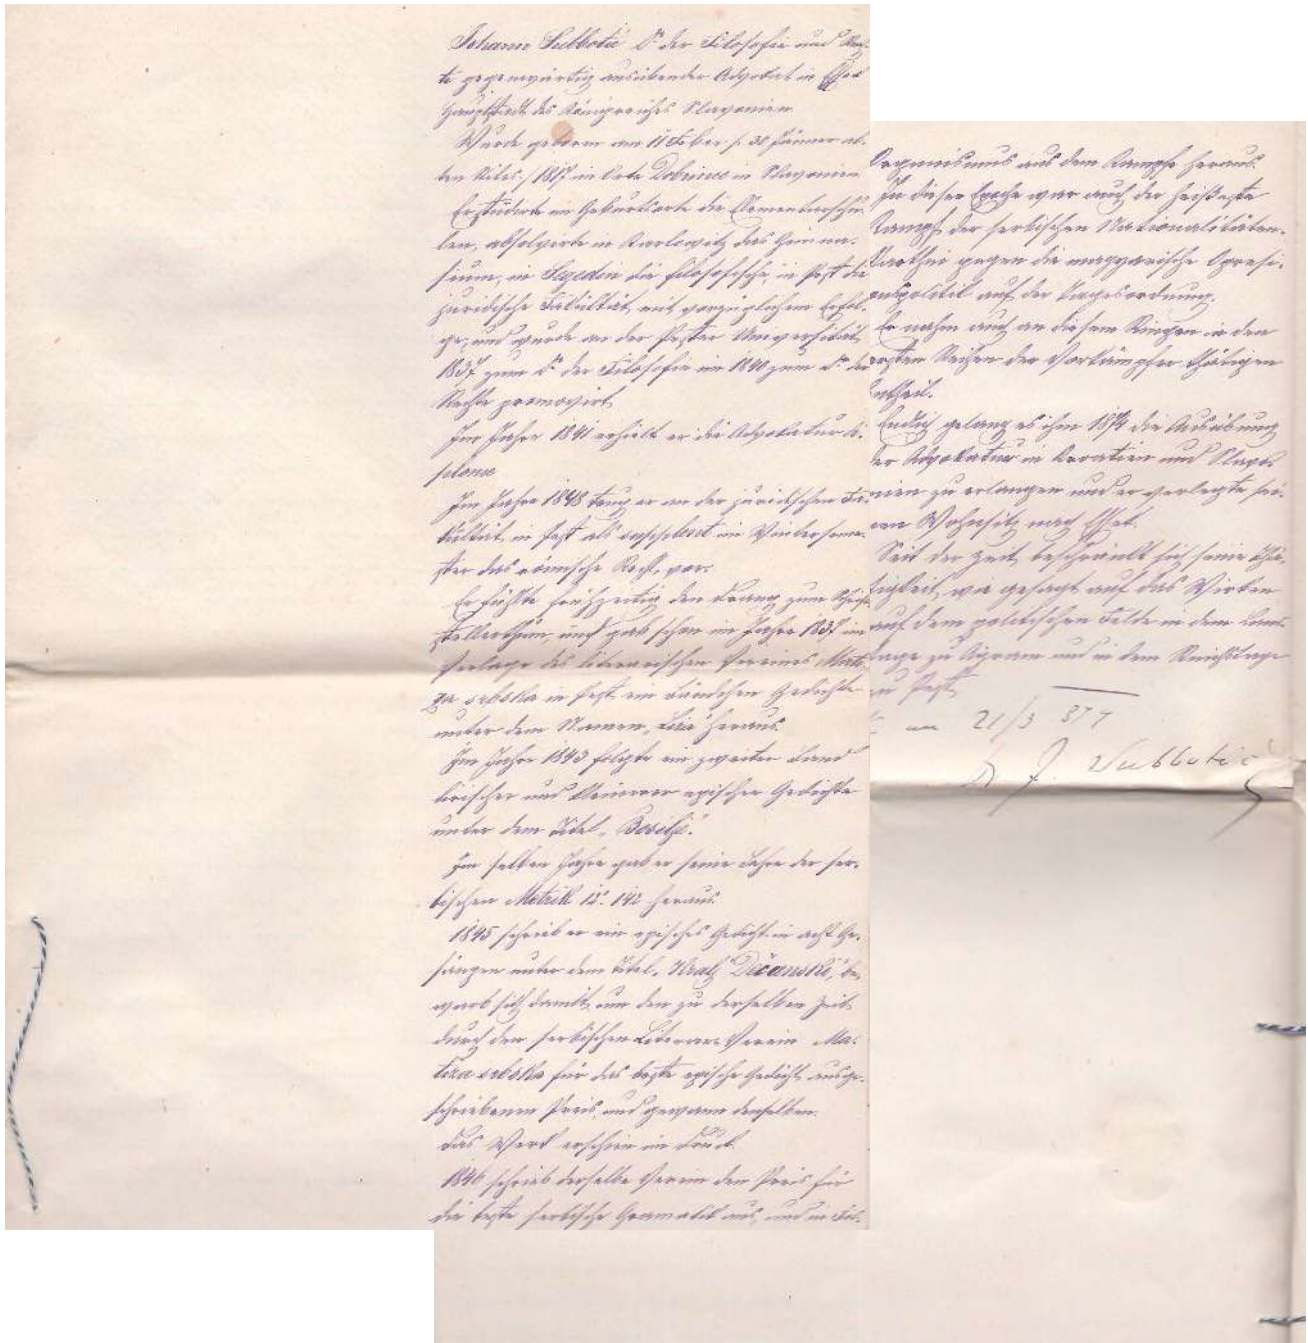 Johann Subbotić Dr der Filosofie und Rech-
te gegenwärtig ausübender Advokat in Essek
Hauptstadt des Königreiches Slavonien
Wurde geboren am 11 Feber /: 30 Jänner al-
ten Stiles:/ 1817 im Orte Dobrince in Slavonien
Er studirte im Geburtsorte die Elementarschu-
len, absolvirte in Karlowitz das Gimna-
sium, in Segedin die filosofische, in Pest die
juridische Fakultät mit vorzüglichem Erfol-
ge, und wurde an der Pester Universität
1837 zum Dr der Filosofie im 1840 zum Dr der
Rechte promovirt
Im Jahre 1841 erhielt er die Advokatur di-
plome
Im Jahre 1848 trug er an der juridischen Fa-
kultät in Pest als im Winterseme-
ster das römische Recht vor.
Er fühlte frühzeitig den Drang zum Schrift-
stellerthum, und gab schon im Jahre 1837 im
Verlage des literarischen Vereines Mati-
za srbska in Pest ein Bändchen Gedichte
unter dem Namen „Lira“ heraus.
Im Jahre 1843 folgte ein zweiter Band
lirischer und kleinerer epischer Gedichte
unter dem Titel „Bosilje“.
Im selben Jahre gab er seine Lehre der ser-
bischen Metrik heraus.
1845 schrieb er ein episches Gedicht in acht Ge-
sängen unter dem Titel „Kralj Dečanski“, be-
warb sich damit um den zu derselben Zeit
durch den serbischen Literar-Verein Ma-
tiza srbska für das beste epische Gedicht ausge-
schriebenen Preis, und gewann denselben.
Das Werk erschien im Druck
1846 schrieb derselbe Verein den Preis für
die beste serbische Gramatik aus, und in Fol-
Organismus aus dem Kampfe heraus.
In dieser Epoche war auch der heißeste
Kampf der serbischen Nationalitäten-
Parthei gegen die magyarische Opresi-
onspolitik auf der Tagesordnung.
Er nahm auch an diesem Ringen in den
ersten Reihen der Vorkämpfer thätigen
Antheil.
Endlich gelang es ihm 1874 die Ausübung
der Advokatur in Kroatien und Slavo-
nien zu erlangen und er verlegte sei-
nen Wohnsitz nach Essek.
Seit der Zeit beschränkt sich seine Thä-
tigkeit wie gesagt auf das Wirken
auf dem politischen Felde in dem Land-
tage zu Agram und in dem Reichstage
zu Pest
am 21/3 879
Dr J. Subbotić